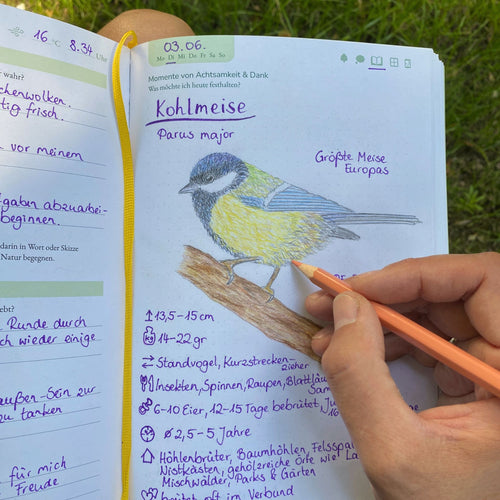 16 °C 8.34 Uhr
wahr?
cherwolken.
tig frisch.
vor meinem
gaben abzuarbei-
beginnen.
darin in Wort oder Skizze
Natur begegnen.
ebt?
Runde durch
ch wieder einige
außen-Sein zur
zu tanken
für mich
Freude
03.06.
Mo Di Mi Do Fr Sa So
Momente von Achtsamkeit & Dank
Was möchte ich heute festhalten?
Kohlmeise
Parus major
Größte Meise
Europas
13,5-15cm
kg 14-22 gr
Standvogel, Kurzstrecken-
zieher
Insekten, Spinnen, Raupen, Blattläu
Sam
6-10 Eier, 12-15 Tage bebrütet, Ju
16
ø 2,5-5 Jahre
Höhlenbrüter, Baumhöhlen, Felsspa
Nistkästen, gehölzreiche Orte wie La
Mischwälder, Parks & Gärten
brütet oft im Verbund